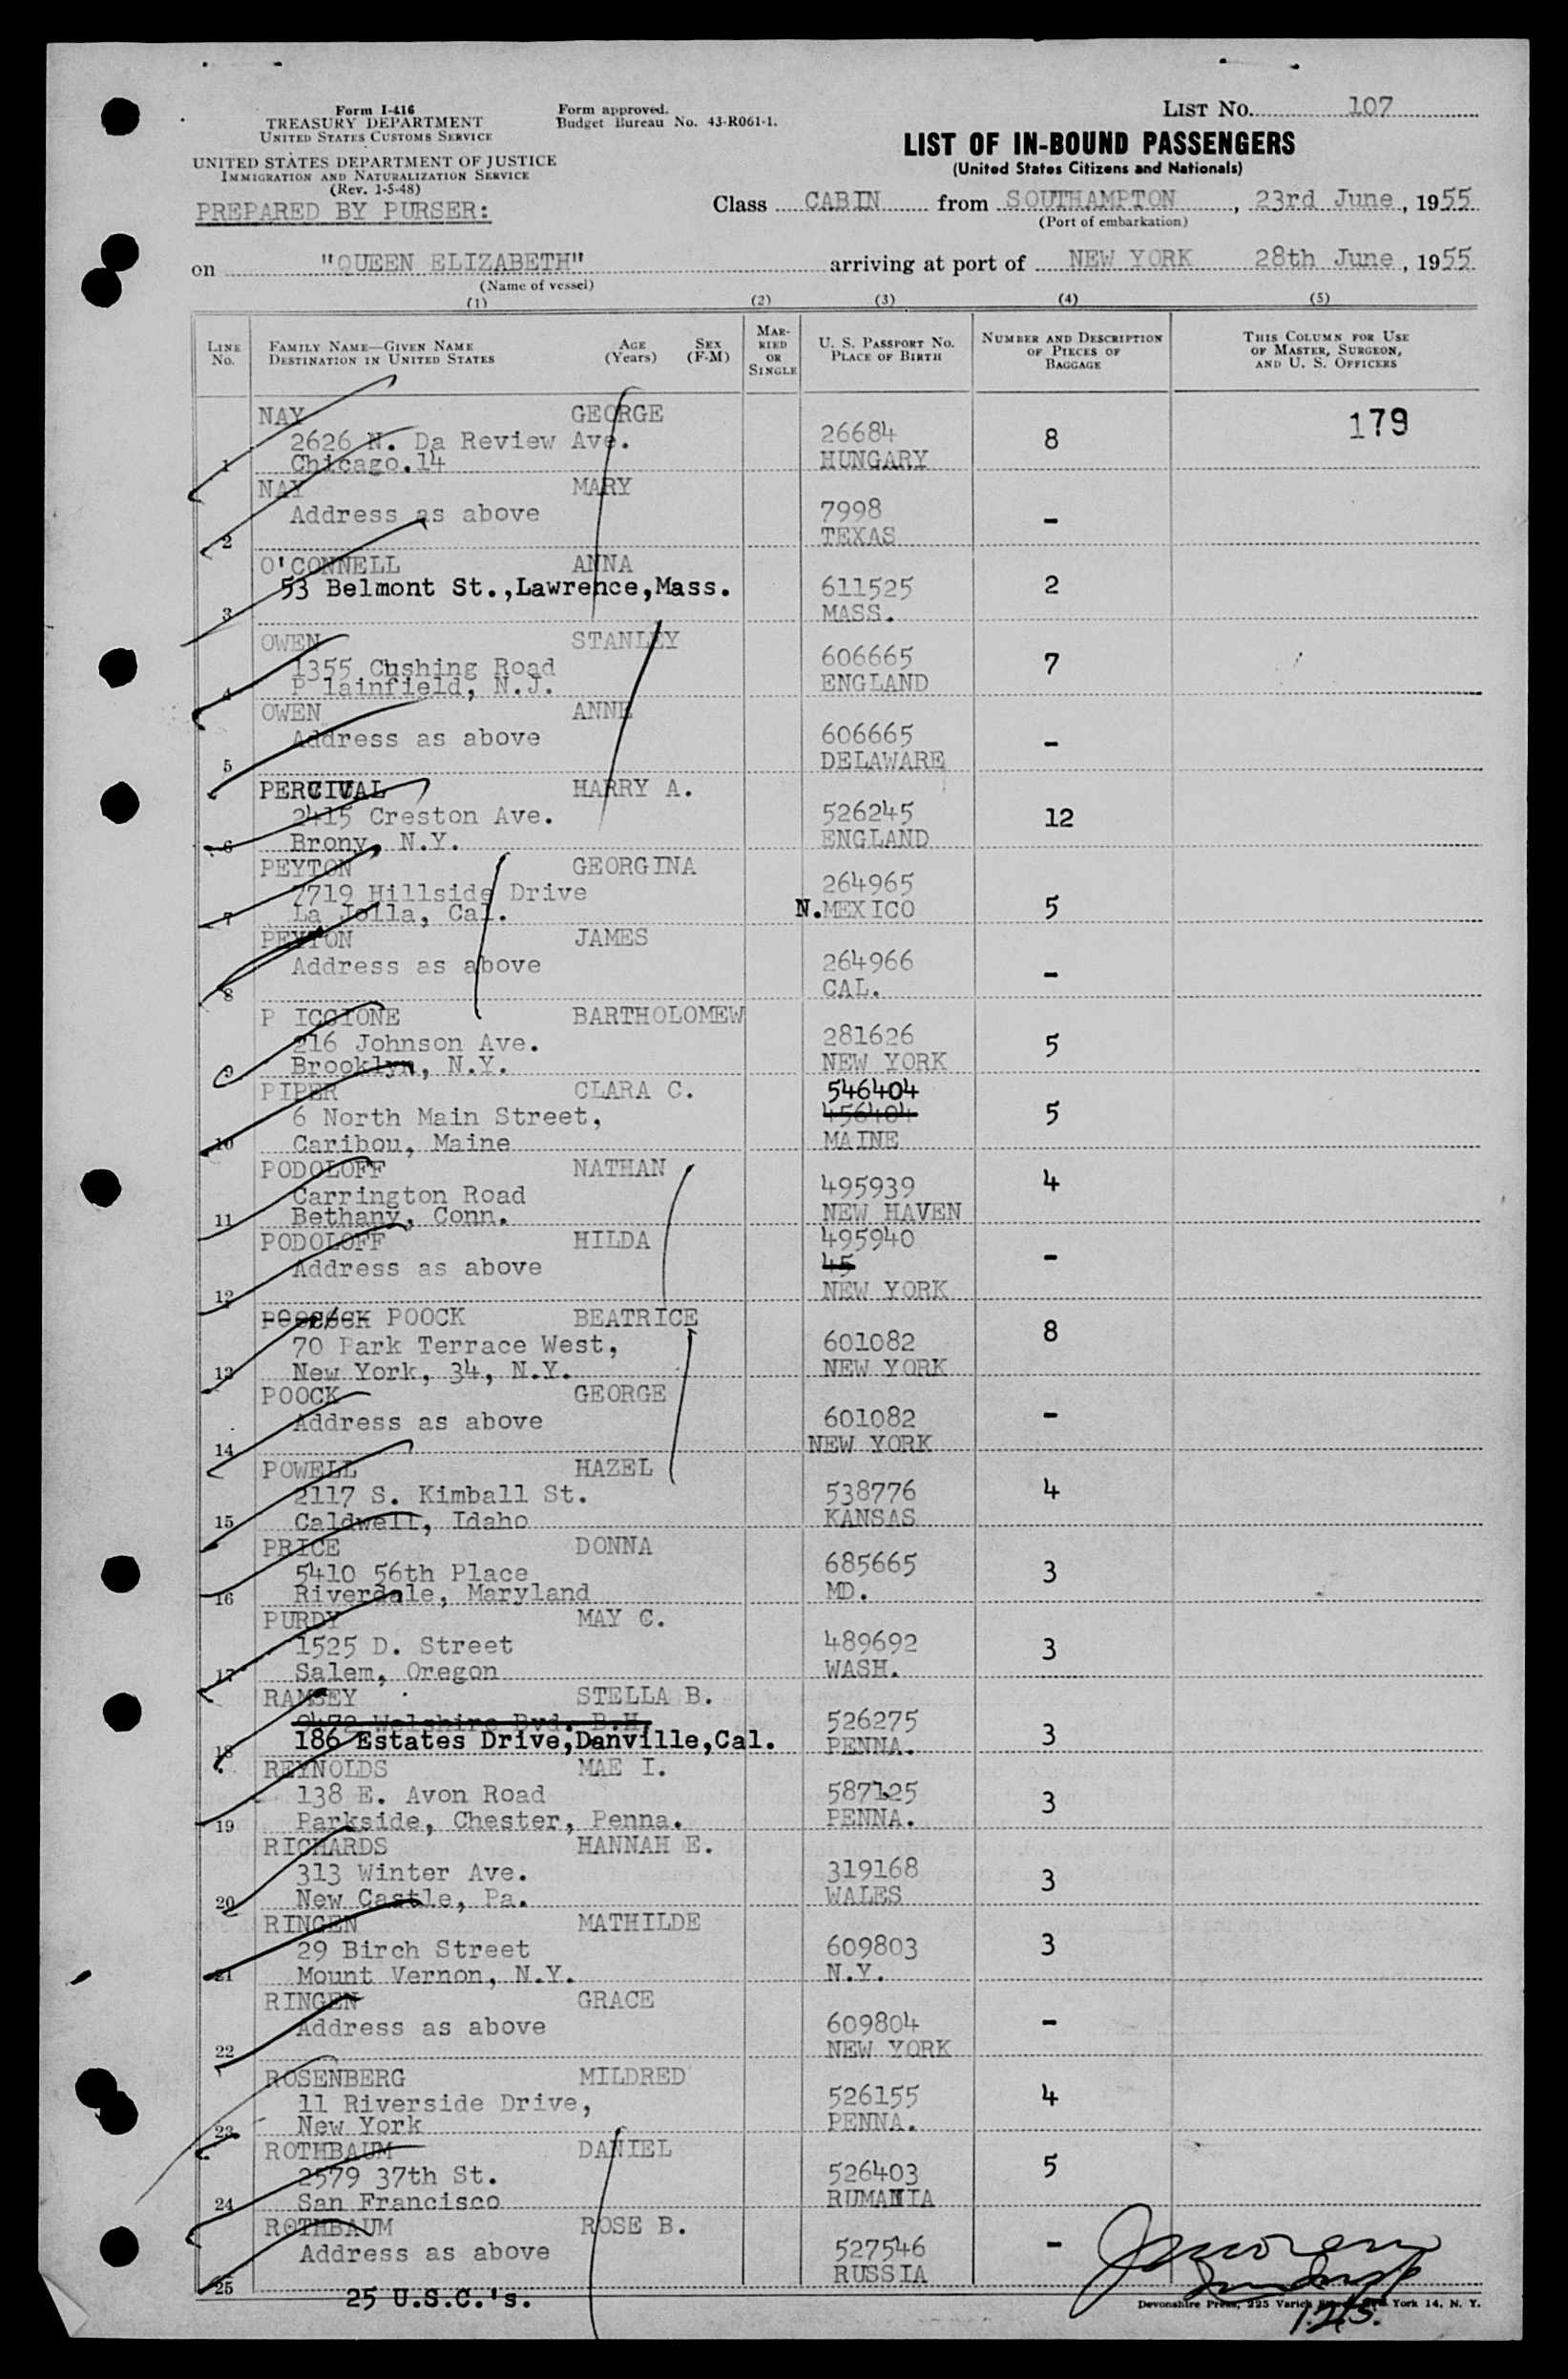 Form I-416
TREASURY DEPARTMENT
UNITED STATES CUSTOMS SERVICE
UNITED STATES DEPARTMENT OF JUSTICE
IMMIGRATION AND NATURALIZATION SERVICE
(Rev. 1-5-48)
PREPARED BY PURSER:
Form approved.
Budget Bureau No. 43-R061-1.
LIST NO. 107
LIST OF IN-BOUND PASSENGERS
(United States Citizens and Nationals)
Class CABIN from SOUTHAMPTON, 23rd June, 1955
(Port of embarkation)
on "QUEEN ELIZABETH" arriving at port of NEW YORK 28th June, 1955
(Name of vessel)
(1) (2) (3) (4) (5)
LINE NO.
FAMILY NAME—GIVEN NAME
DESTINATION IN UNITED STATES
AGE (Years)
SEX (F-M)
MARRIED OR SINGLE
U. S. PASSPORT NO.
PLACE OF BIRTH
NUMBER AND DESCRIPTION OF PIECES OF BAGGAGE
THIS COLUMN FOR USE OF MASTER, SURGEON, AND U. S. OFFICERS
179
NAY GEORGE
2626 N. Da Review Ave. 26684 8
1 Chicago.14 HUNGARY
NAY MARY
Address as above 7998 -
2 TEXAS
O'CONNELL ANNA
53 Belmont St.,Lawrence,Mass. 611525 2
3 MASS.
OWEN STANLEY
1355 Cushing Road 606665 7
4 P lainfield, N.J. ENGLAND
OWEN ANNE
Address as above 606665 -
5 DELAWARE
PERCIVAL HARRY A.
2415 Creston Ave. 526245 12
6 Brony, N.Y. ENGLAND
PEYTON GEORGINA
7719 Hillside Drive 264965
7 La Jolla, Cal. N.MEXICO 5
PEYTON JAMES
Address as above 264966 -
8 CAL.
P ICCIONE BARTHOLOMEW
216 Johnson Ave. 281626 5
9 Brooklyn, N.Y. NEW YORK
PIPER CLARA C. 546404
6 North Main Street, 456404 5
10 Caribou, Maine MAINE
PODOLOFF NATHAN
Carrington Road 495939 4
11 Bethany, Conn. NEW HAVEN
PODOLOFF HILDA 495940
Address as above 45 -
12 NEW YORK
POOCOCK POOCK BEATRICE
70 Park Terrace West, 601082 8
13 New York, 34, N.Y. NEW YORK
POOCK GEORGE
Address as above 601082 -
14 NEW YORK
POWELL HAZEL
2117 S. Kimball St. 538776 4
15 Caldwell, Idaho KANSAS
PRICE DONNA
5410 56th Place 685665 3
16 Riverdale, Maryland MD.
PURDY MAY C.
1525 D. Street 489692 3
17 Salem, Oregon WASH.
RAMSEY STELLA B.
9472 Welshire Bvd. B.H. 526275 3
18 186 Estates Drive,Danville,Cal. PENNA.
REYNOLDS MAE I.
138 E. Avon Road 587125 3
19 Parkside, Chester, Penna. PENNA.
RICHARDS HANNAH E.
313 Winter Ave. 319168 3
20 New Castle, Pa. WALES
RINGEN MATHILDE
29 Birch Street 609803 3
21 Mount Vernon, N.Y. N.Y.
RINGEN GRACE
Address as above 609804 -
22 NEW YORK
ROSENBERG MILDRED
11 Riverside Drive, 526155 4
23 New York PENNA.
ROTHBAUM DANIEL
2579 37th St. 526403 5
24 San Francisco RUMANIA
ROTHBAUM ROSE B.
Address as above 527546 -
25 RUSSIA
25 U.S.C.'s.
Devonshire Press, 225 Varick Street, New York 14, N. Y.